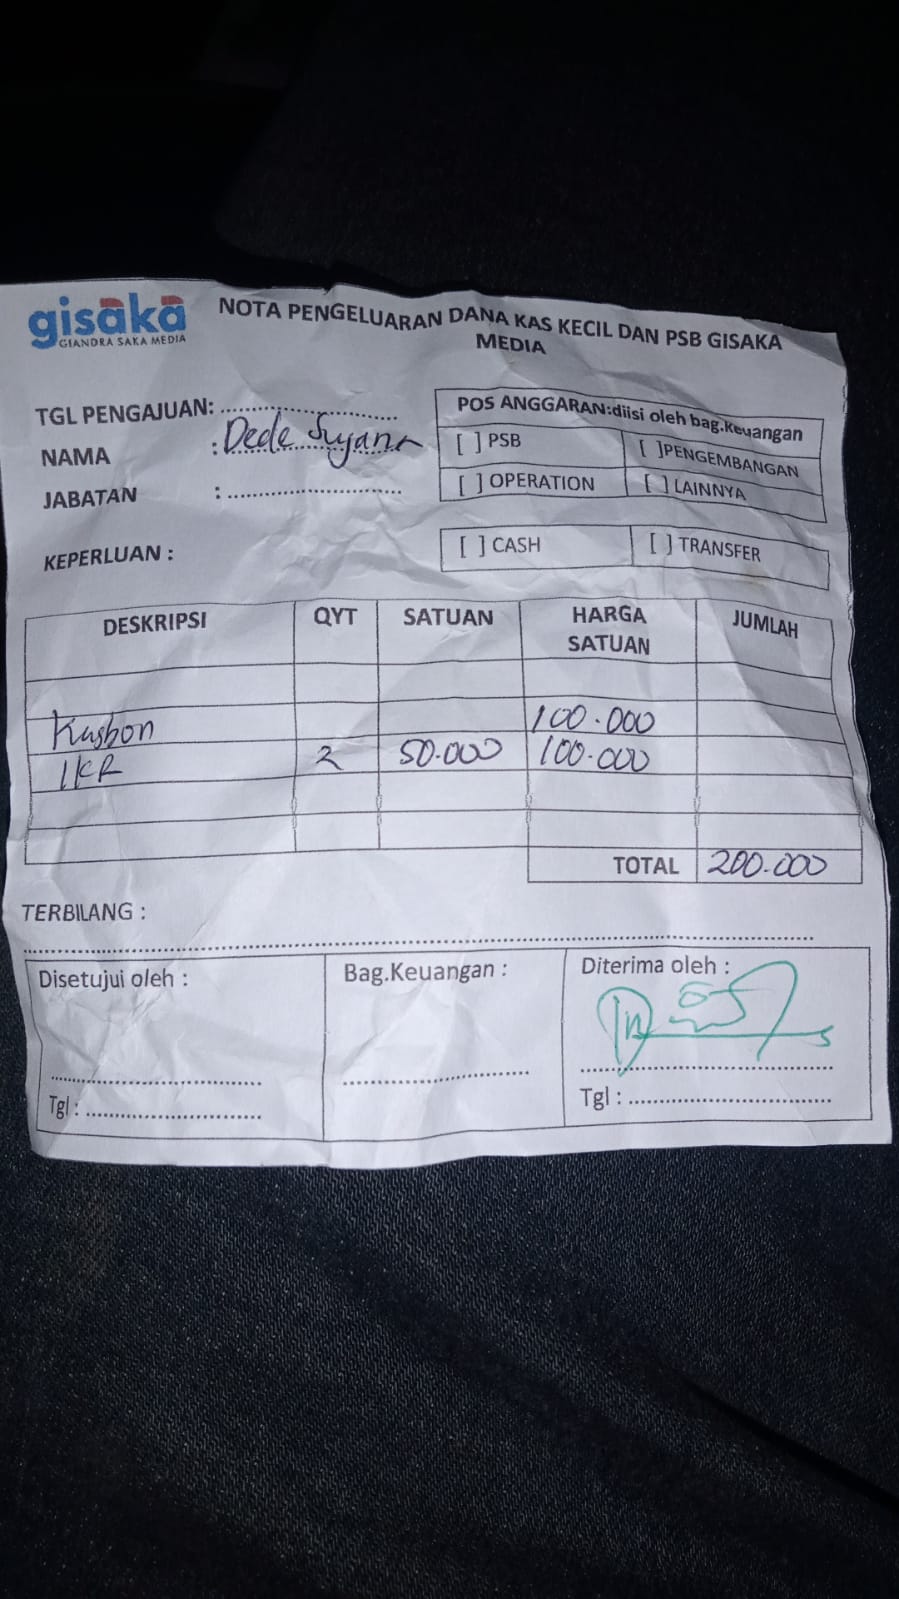 gisaka
GIANDRA SAKA MEDIA
NOTA PENGELUARAN DANA KAS KECIL DAN PSB GISAKA
MEDIA
TGL PENGAJUAN: ........................
NAMA : Dede Suyana
JABATAN : ........................
POS ANGGARAN:diisi oleh bag.Keuangan
[ ] PSB [ ]PENGEMBANGAN
[ ] OPERATION [ ] LAINNYA
KEPERLUAN :
[ ] CASH [ ] TRANSFER
DESKRIPSI QYT SATUAN HARGA SATUAN JUMLAH
Kasbon 100.000
IKR 2 50.000 100.000
TOTAL 200.000
TERBILANG :
Disetujui oleh : Bag.Keuangan : Diterima oleh :
Tgl : ........................ Tgl : ........................